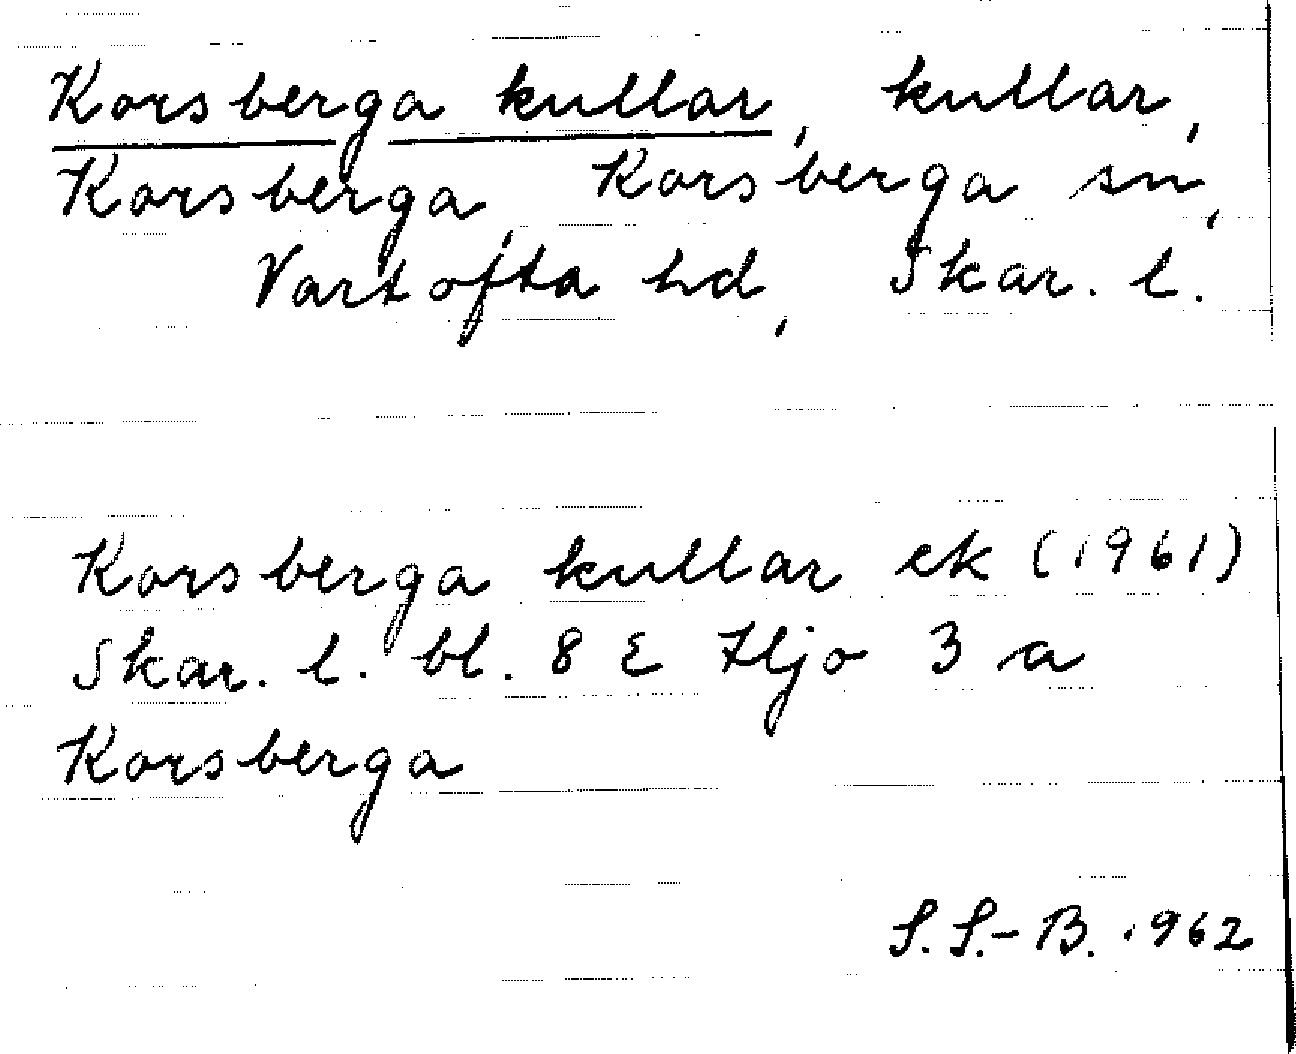 Korsberga kullar, kullar,
Korsberga, Korsberga sn,
Vartofta hd, Skar. l.
Korsberga kullar ek (1961)
Skar. l. bl. 8 E Hjo 3 a
Korsberga
S. S.-B. 1962